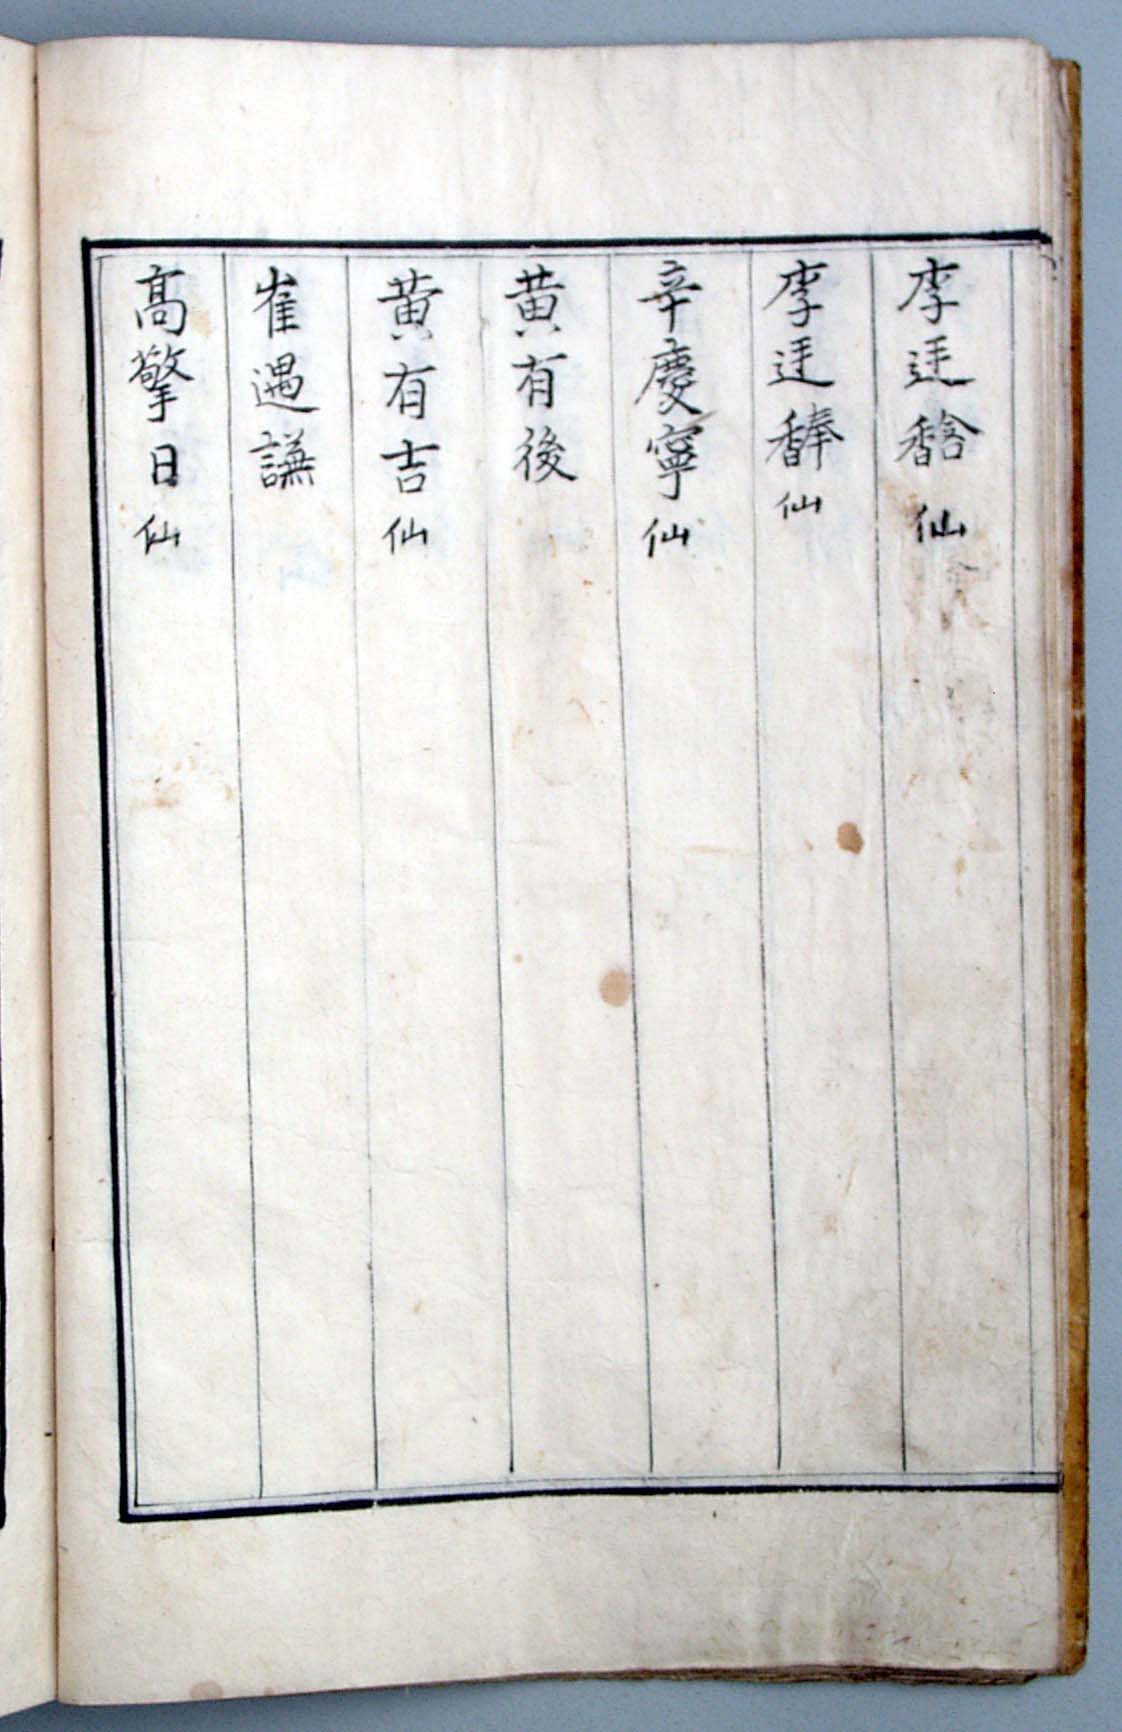 李廷馠仙
李廷仙
辛慶寧仙
黄有後
黄有吉仙
崔遇謙
髙擎日仙